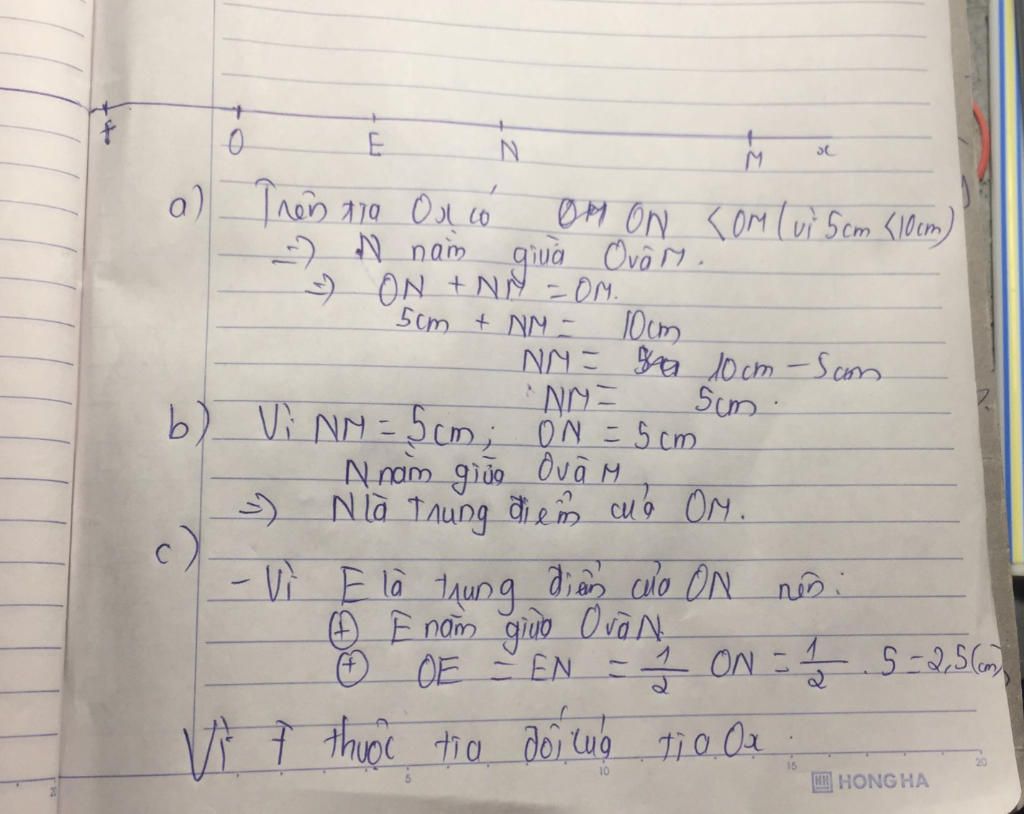 F O E N M x
a) Trên tia Ox có ON < OM (vì 5cm < 10cm)
=> N nằm giữa O và M.
=> ON + NM = OM.
5cm + NM = 10cm
NM = 10cm - 5cm
NM = 5cm.
b) Vì NM = 5cm; ON = 5cm
N nằm giữa O và M
=> N là trung điểm của OM.
c)
- Vì E là trung điểm của ON nên:
⊕ E nằm giữa O và N
⊕ OE = EN = 1/2 ON = 1/2 . 5 = 2,5 (cm)
Vì F thuộc tia đối của tia Ox.
5 10 15 20
HONG HA